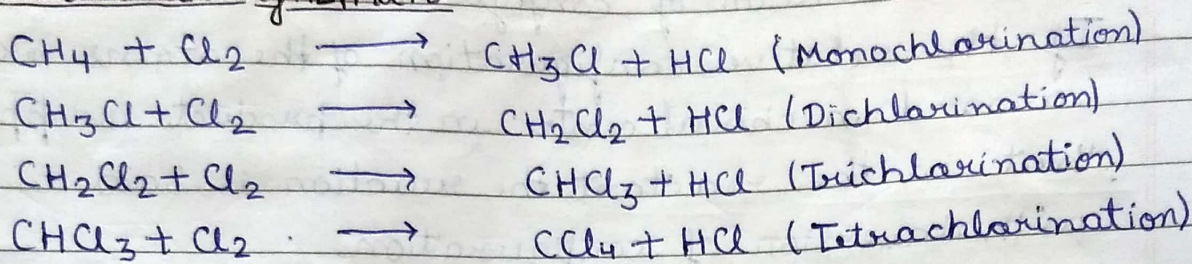 CH₄ + Cl₂ ⟶ CH₃Cl + HCl (Monochlorination)
CH₃Cl + Cl₂ ⟶ CH₂Cl₂ + HCl (Dichlorination)
CH₂Cl₂ + Cl₂ ⟶ CHCl₃ + HCl (Trichlorination)
CHCl₃ + Cl₂ ⟶ CCl₄ + HCl (Tetrachlorination)